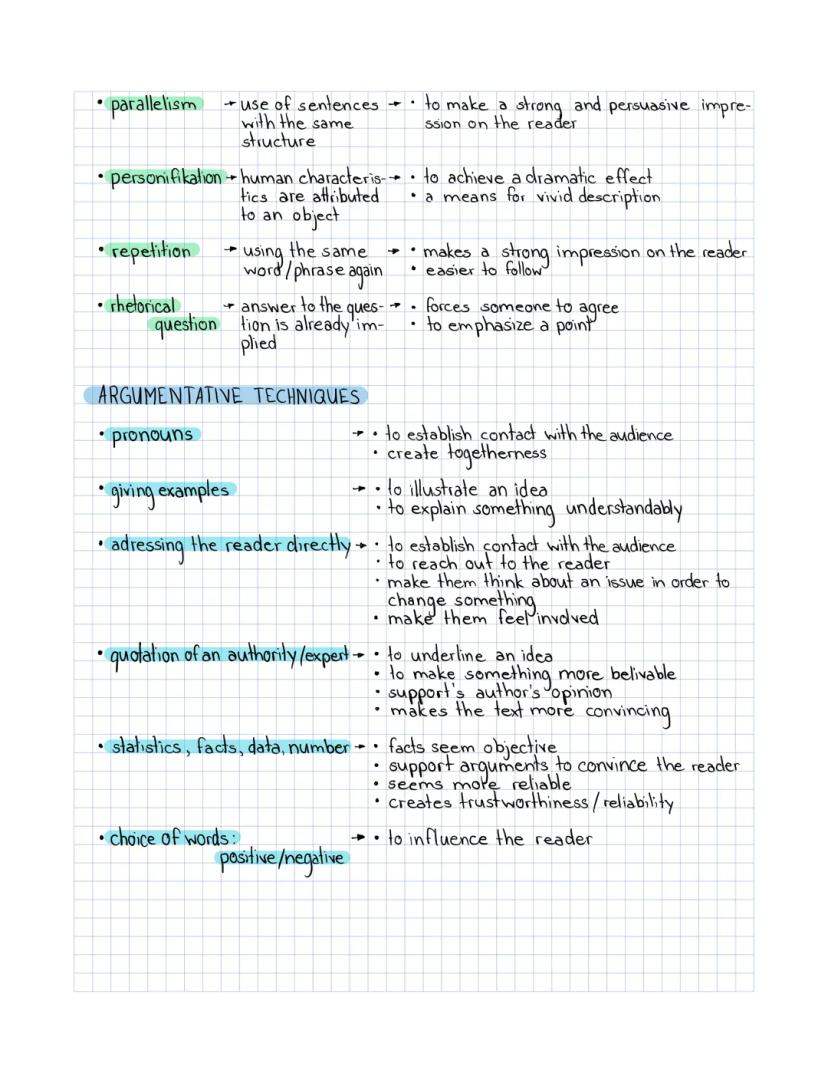 • parallelism → use of sentences → • to make a strong and persuasive impre-
with the same ssion on the reader
structure
• personifikation → human characteris- → • to achieve a dramatic effect
tics are attributed • a means for vivid description
to an object
• repetition → using the same → • makes a strong impression on the reader
word/phrase again • easier to follow
• rhetorical → answer to the ques- → • forces someone to agree
question tion is already im- • to emphasize a point
plied
ARGUMENTATIVE TECHNIQUES
• pronouns → • to establish contact with the audience
• create togetherness
• giving examples → • to illustrate an idea
• to explain something understandably
• adressing the reader directly → • to establish contact with the audience
• to reach out to the reader
• make them think about an issue in order to
change something
• make them feel involved
• quotation of an authority/expert → • to underline an idea
• to make something more belivable
• support's author's opinion
• makes the text more convincing
• statistics, facts, data, number → • facts seem objective
• support arguments to convince the reader
• seems more reliable
• creates trustworthiness/reliability
• choice of words: → • to influence the reader
positive/negative